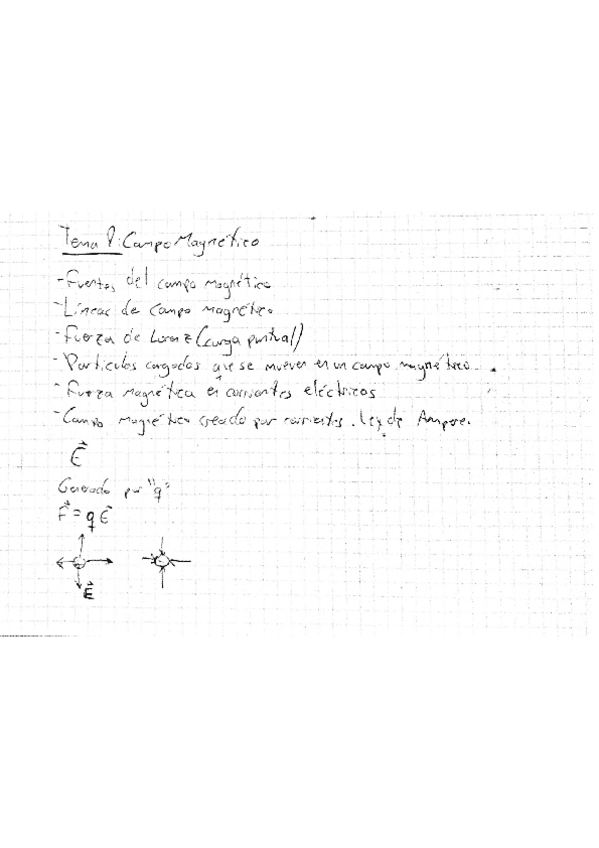 Tema 8: Campo Magnético
- Fuentes del campo magnético
- Líneas de campo magnético
- Fuerza de Lorenz (carga puntual)
- Partículas cargadas que se mueven en un campo magnético.
- Fuerza magnética en corrientes eléctricas
- Campo magnético creado por corrientes. Ley de Ampere.
E⃗
Generado por "q"
F⃗ = q E⃗
E⃗